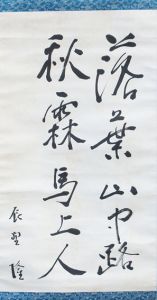 落葉山中路
秋霖馬上人